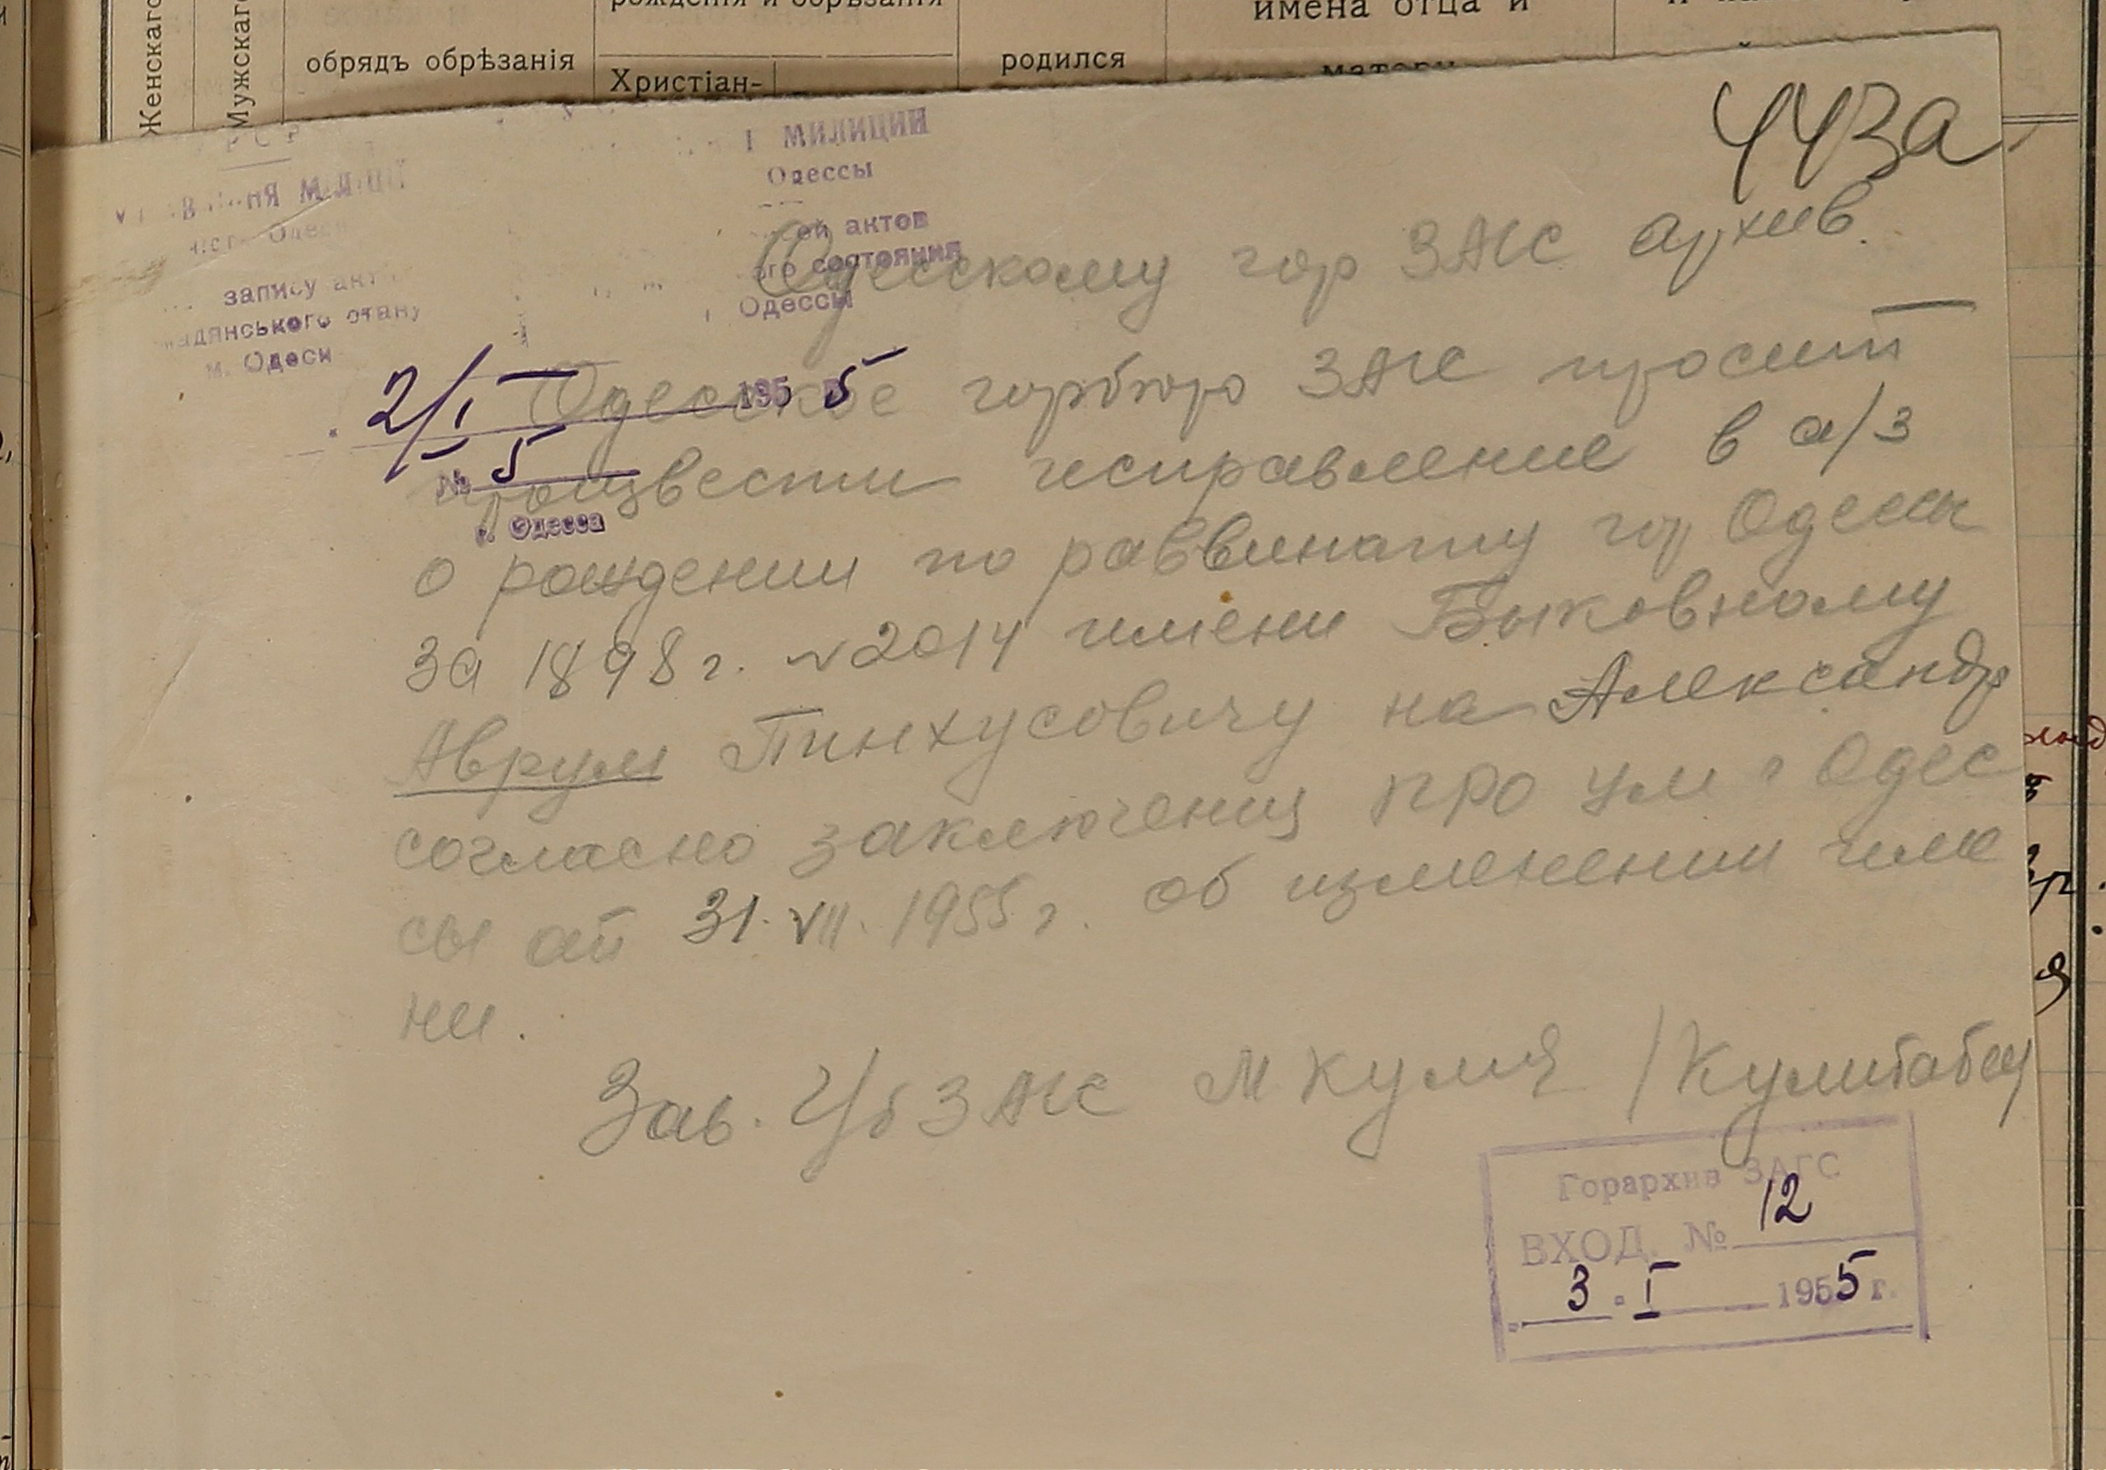 Женскаго
Мужскаго
обрядъ обрѣзанія
рожденія и обрѣзанія
Христіан-
родился
имена отца и
матери
443а
милиции
Одессы
актов
состояния
Одессы
запису
м. Одеси
2/I 1955
№ 5
г. Одесса
Одесскому гор ЗАГС архив.
Одесское горбюро ЗАГС просит
произвести исправление в а/з
о рождении по раввинату гор Одессы
за 1898 г. №2014 имени Быковному
Аврум Пинхусовичу на Александр
согласно заключения РПО УМ г Одес
сы от 31.VII.1955 г. об изменении име
ни.
Зав. ЗАГС
Горархив ЗАГС
ВХОД. № 12
3. I 1955 г.